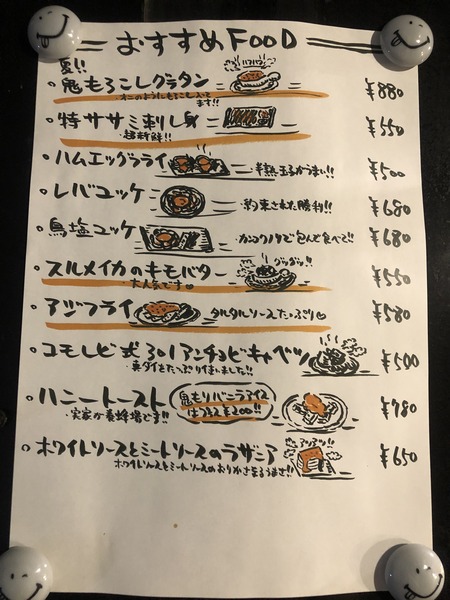 おすすめFOOD
夏!!
・鬼もろこしグラタン ハフハフ ¥880
・特ササミ刺し身 ¥550
超新鮮!!
・ハムエッグフライ 半熟玉子がうまい!! ¥500
・レバユッケ 約束された勝利!! ¥680
・鳥塩ユッケ カンコクノリで包んで食べて!! ¥680
・スルメイカのキモバター グツグツ!! ¥550
大人気です♡
・アジフライ タルタルソースたっぷり♡ ¥580
・コモレビ式 アンチョビキャベツ ¥500
・ハニートースト 鬼もりバニラアイス ¥780
・実家が養蜂場です!! はプラス¥200!!
・ホワイトソースとミートソースのラザニア アツアツ!! ¥650
ホワイトソースとミートソースのおりかさなるうまさ!!